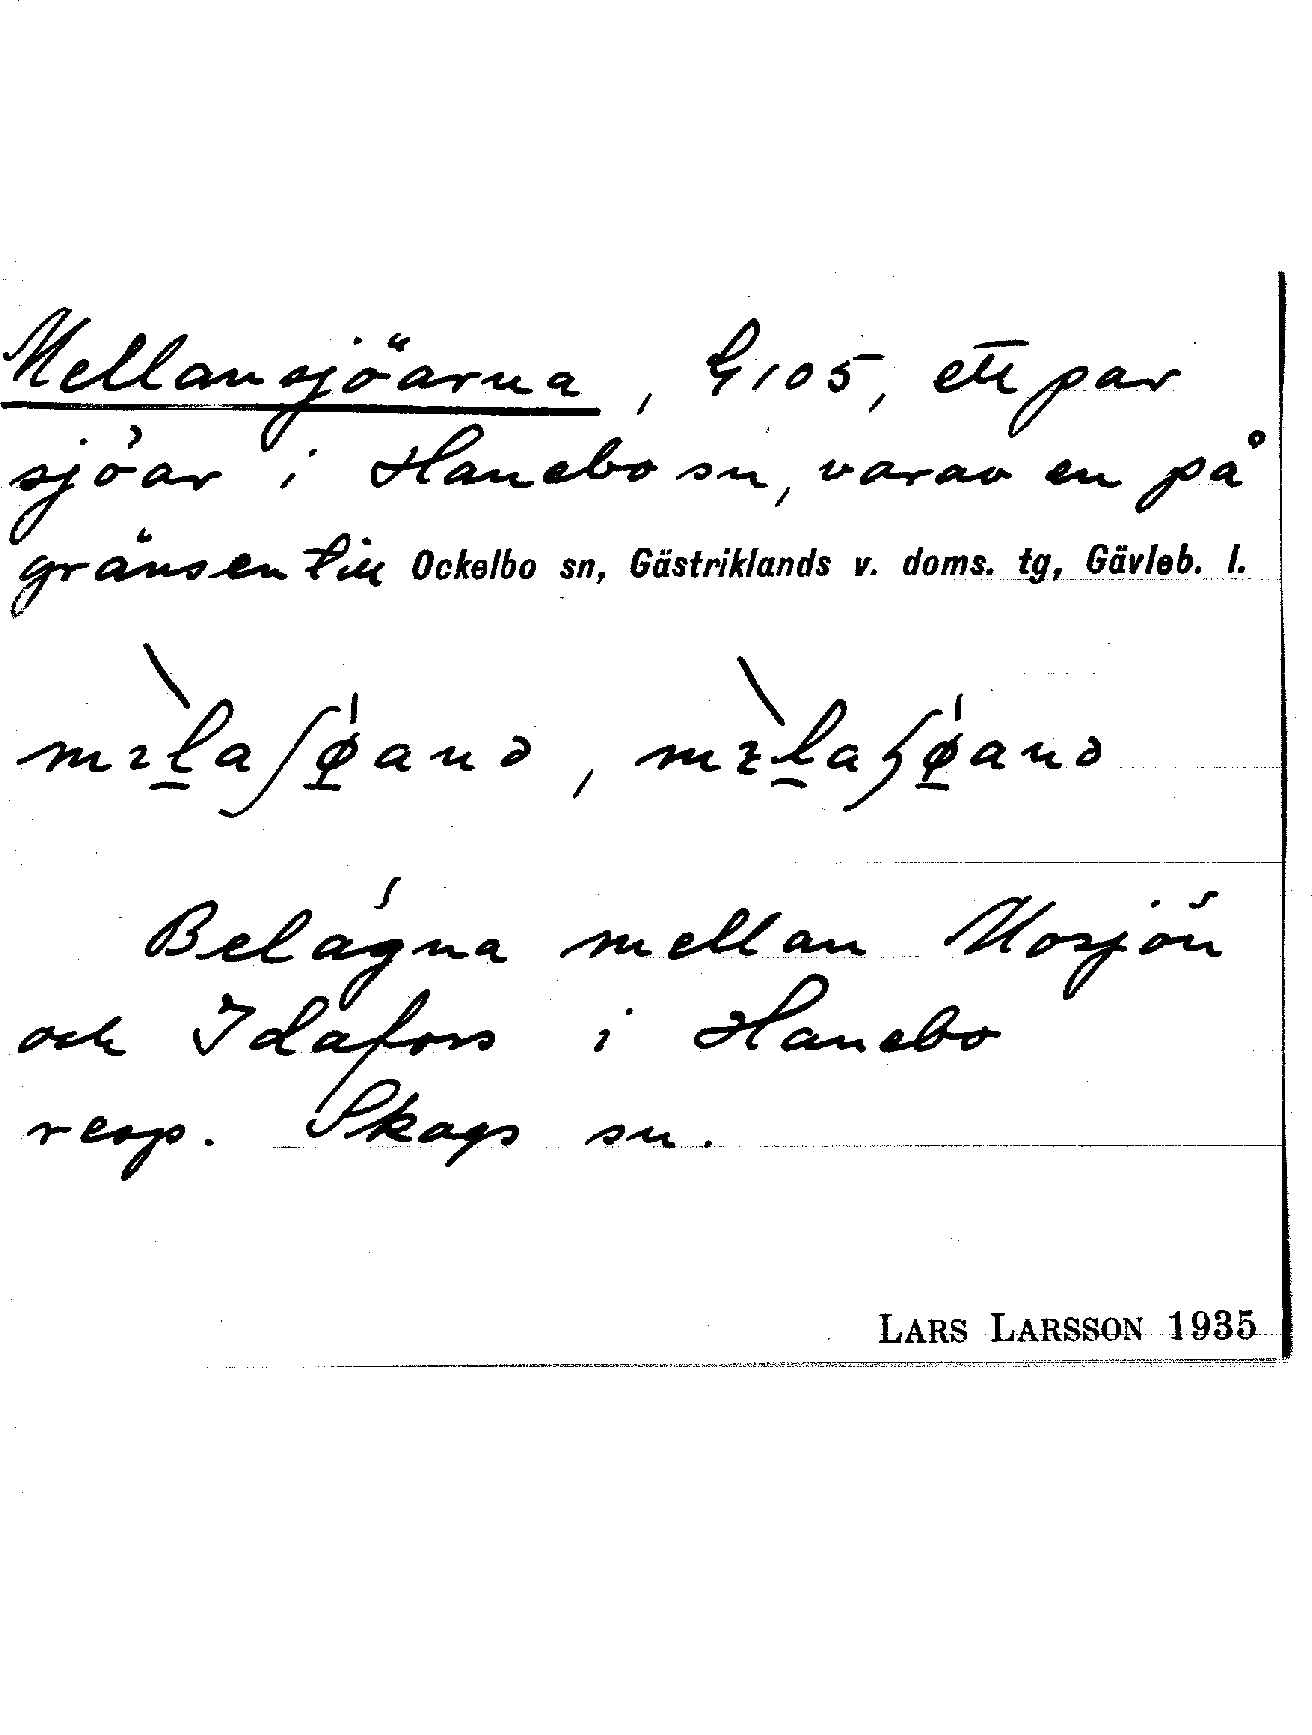 Mellansjöarna, G 105, ett par
sjöar i Hanebo sn, varav en på
gränsen till Ockelbo sn, Gästriklands v. doms. tg, Gävleb. l.
Belägna mellan Mosjön
och Idafors i Hanebo
resp. Skogs sn.
LARS LARSSON 1935